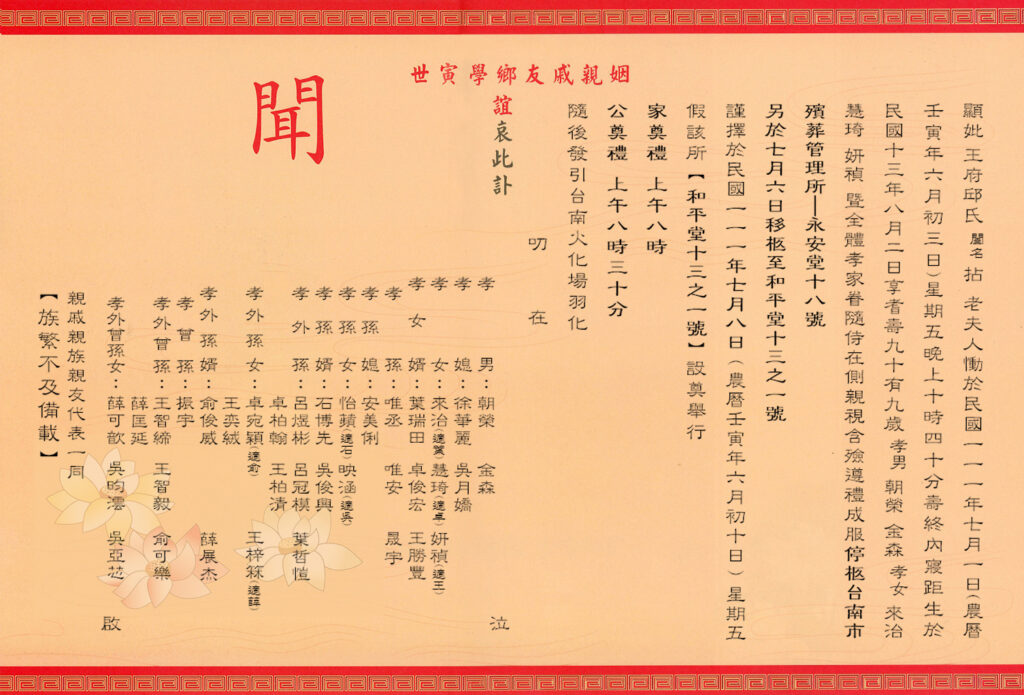 顯妣 王府邱氏 閨名 拈 老夫人慟於民國一一一年七月一日(農曆
壬寅年六月初三日)星期五晚上十時四十分壽終內寢距生於
民國十三年八月二日享耆壽九十有九歲 孝男 朝榮 金森 孝女 來治
慧琦 妍禎 暨全體孝家眷隨侍在側親視含殮遵禮成服停柩台南市
殯葬管理所—永安堂十八號
另於七月六日移柩至和平堂十三之一號
謹擇於民國一一一年七月八日(農曆壬寅年六月初十日)星期五
假該所【和平堂十三之一號】設奠舉行
家奠禮 上午八時
公奠禮 上午八時三十分
隨後發引台南火化場羽化
叨在
姻親戚友鄉學寅世
誼哀此訃
聞
孝男:朝榮 金森 泣
孝媳:徐華麗 吳月嬌
孝女:來治(適葉) 慧琦(適卓) 妍禎(適王)
孝女婿:葉瑞田 卓俊宏 王勝豐
孝孫:唯丞 唯安 晟宇
孝孫媳:安美俐
孝孫女:怡蘋(適石) 映涵(適吳)
孝孫婿:石博先 吳俊興
孝外孫:呂煜彬 呂冠模 葉哲愷
卓柏翰 王柏清
孝外孫女:卓宛穎(適俞) 王梓秝(適薛)
王奕絨
孝外孫婿:俞俊威 薛展杰
孝曾孫:振宇
孝外曾孫:王智締 王智毅 俞可樂
薛匡延
孝外曾孫女:薛可歆 吳昀澐 吳亞芯 啟
親戚親族親友代表一同
【族繁不及備載】